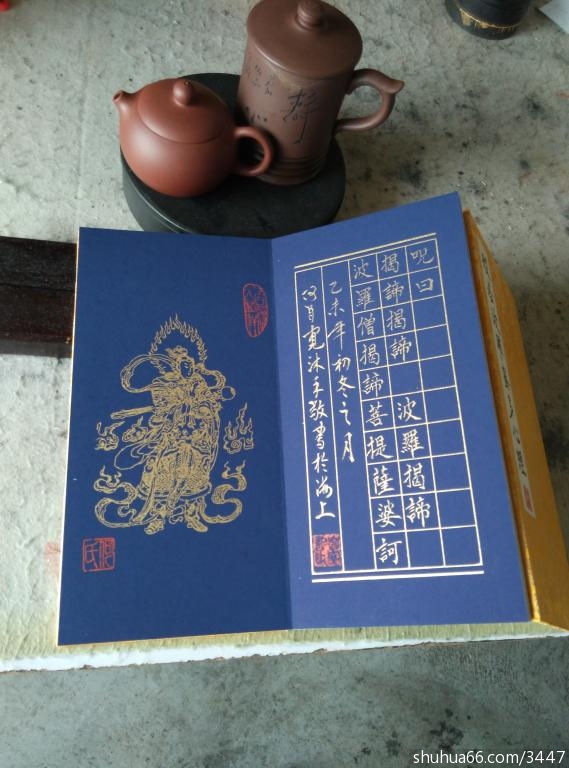 呪曰
揭諦揭諦 波羅揭諦
波羅僧揭諦菩提薩婆訶
乙未年初冬之月
沐手敬書於海上
何氏
靜
shuhua66.com/3447